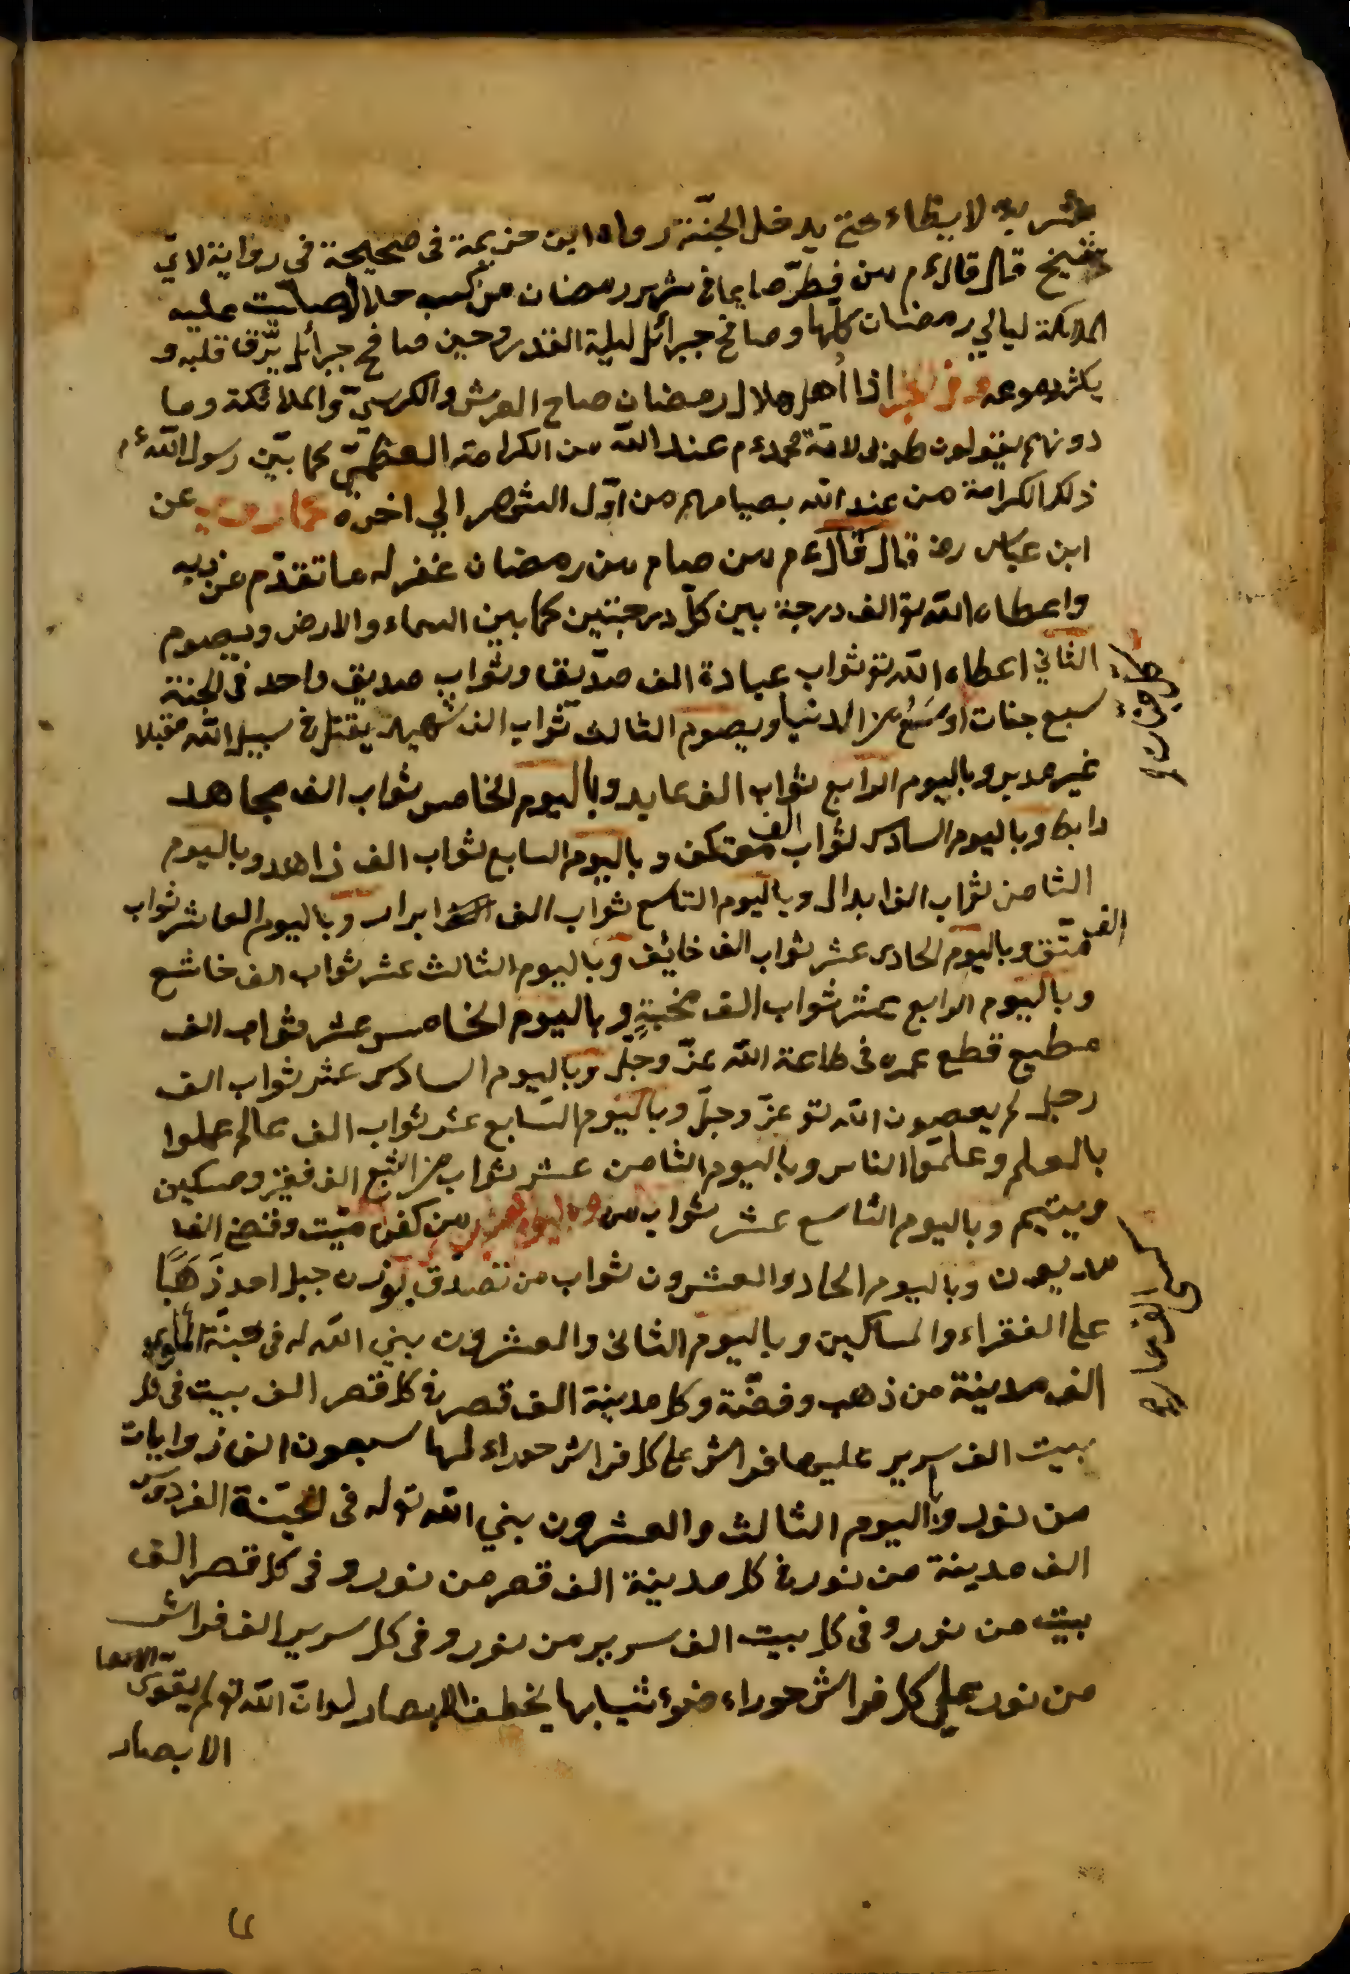 شربة لا يظماء حتى يدخل الجنّة رواه ابن خزيمة فى صحيحة فى رواية لابى
شيخ قال قال ءم من فطّر صايما فى شهر رمضان من كسب حلال صلّت عليه
الملائكة ليالي رمضان كلّها وصافح جبرائل ليلة القدر وحين صافح جبرائل يرّق قلبه و
يكثر دموعه وفى الخبر اذا أهل هلال رمضان صاح العرش والكرسيّ والملائكة وما
دونهم يقولون طوبى لامّة محمد ءم عند الله من الكرامة العظمى كما بيّن رسول الله ءم
ذلك الكرامة من عند الله بصيامهم من اوّل الشهر الي اخره كما روي عن
ابن عباس رض قال قال ءم من صام من رمضان غفر له ما تقدّم من ذنبه
واعطاه الله تع الف درجة بين كلّ درجتين كما بين السماء والارض وبصوم
الثاني اعطاه الله تع ثواب عبادة الف صدّيقا وثواب صديق واحد فى الجنة
سبع جنات اوسع من الدنيا وبصوم الثالث ثواب الف شهيد يقتل فى سبيل الله مقبلا
غير مدبر وباليوم الرابع ثواب الف عابد وباليوم الخامس ثواب الف مجاهد
رابط وباليوم السادس ثواب الف معتكف وباليوم السابع ثواب الف زاهد وباليوم
الثامن ثواب الف ابدال وباليوم التاسع ثواب الف ابرار وباليوم العاشر ثواب
الف متّق وباليوم الحادى عشر ثواب الف خائف وباليوم الثالث عشر ثواب الف خاشع
وباليوم الرابع عشر ثواب الف مخبتٍ وباليوم الخامس عشر ثواب الف
مطيع قطع عمره فى طاعة الله عزّ وجلّ وباليوم السادس عشر ثواب الف
رجل لم يعصون الله تع عزّ وجلّ وباليوم السّابع عشر ثواب الف عالم عملوا
بالعلم وعلّموا الناس وباليوم الثامن عشر ثواب من اشبع الف فقير ومسكين
ويتيم وباليوم التاسع عشر ثواب من وباليوم العشرين من كفن ميّت وقضى الف
مديون وباليوم الحاد والعشرون ثواب من تصدّق بوزن جبل احد ذَهَبًا
على الفقراء والمساكين وباليوم الثانى والعشرون بني الله له فى جنّة المأوى
الف مدينة من ذهب وفضّة وكل مدينة الف قصر فى كل قصر الف بيت فى كل
بيت الف سرير عليها فراش على كل فراش حوراء لها سبعون الف ذوابات
من نور وباليوم الثالث والعشرون بني الله تع له فى الجنّة الفردوس
الف مدينة من نور فى كل مدينة الف قصر من نور و فى كل قصر الف
بيت من نور و فى كل بيت الف سرير من نور و فى كل سرير الف فراش
من نور على كل فراش حوراء ضوء ثيابها يخطف الابصار لو انّ الله تع لم يقوّى
الابصار